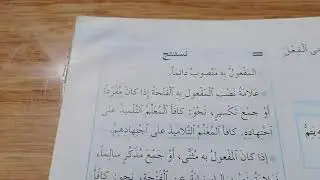 نستنتج
المَفْعولُ بِهِ مَنْصوبٌ دائِماً.
عَلامَةُ نَصْبِ ٱلمَفْعولِ بِهِ ٱلْفَتْحَةُ إِذا كانَ مُفْرَداً
أَوْ جَمْعَ تَكْسيرٍ، نَحْوَ: كافَأَ ٱلْمُعَلِّمُ ٱلتِّلْميذَ عَلى
ٱجْتِهادِهِ. كافَأَ ٱلْمُعَلِّمُ ٱلتَّلاميذَ عَلى ٱجْتِهادِهِمْ.
إِذا كانَ ٱلْمَفْعولُ بِهِ مُثَنّى، أَوْ جَمْعَ مُذَكَّرٍ سالِماً،
عَنِ ٱلْفَتْحَةِ، نَحْوَ: كافَأَ
ٱلْفِعْلِ